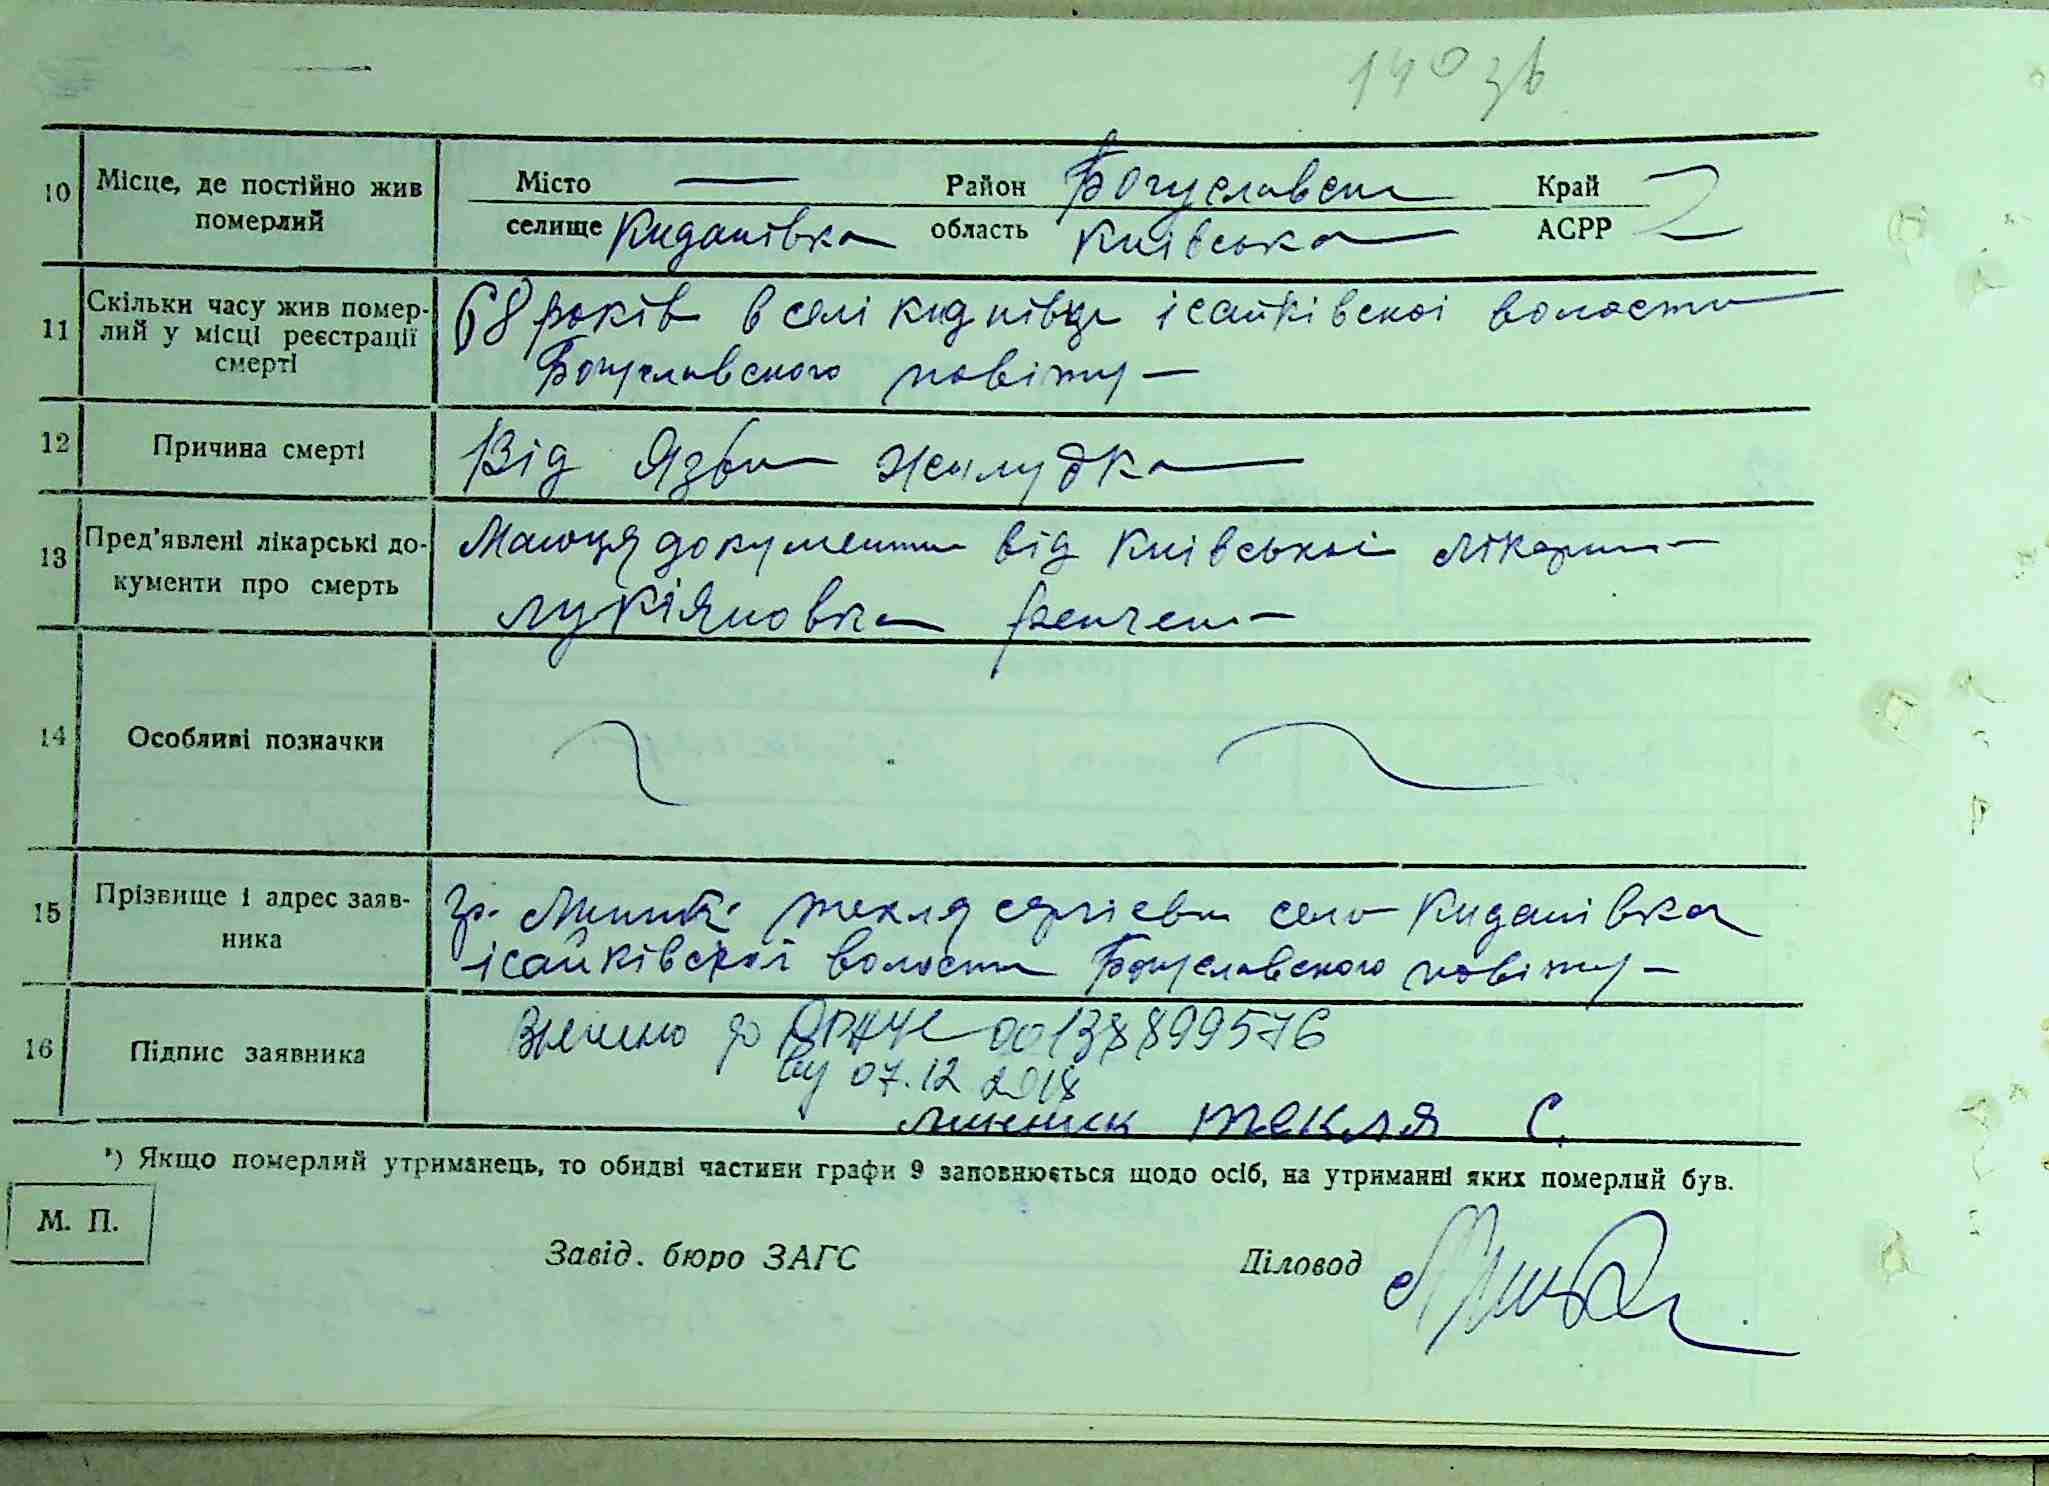 140 зв
10 Місце, де постійно жив померлий
Місто — Район Богуславськ Край
селище Киданівка область Київська АСРР
11 Скільки часу жив помер-
лий у місці реєстрації
смерті
68 років в селі Киднівци ісайківскоі волости
Богуславского повіту —
12 Причина смерті
Від Язви желудка
13 Пред'явлені лікарські до-
кументи про смерть
документи від Київськоі лікарни
Лукіяновка
14 Особливі позначки
15 Прізвище і адрес заяв-
ника
гр. Текля село Киданівка
ісайківскоі волости Богуславского повіту —
16 Підпис заявника
Внесено до ДРАЦС 00138899576
07.12 2018
Линник Текля С.
*) Якщо померлий утриманець, то обидві частини графи 9 заповнюється щодо осіб, на утриманні яких померлий був.
М. П.
Завід. бюро ЗАГС Діловод